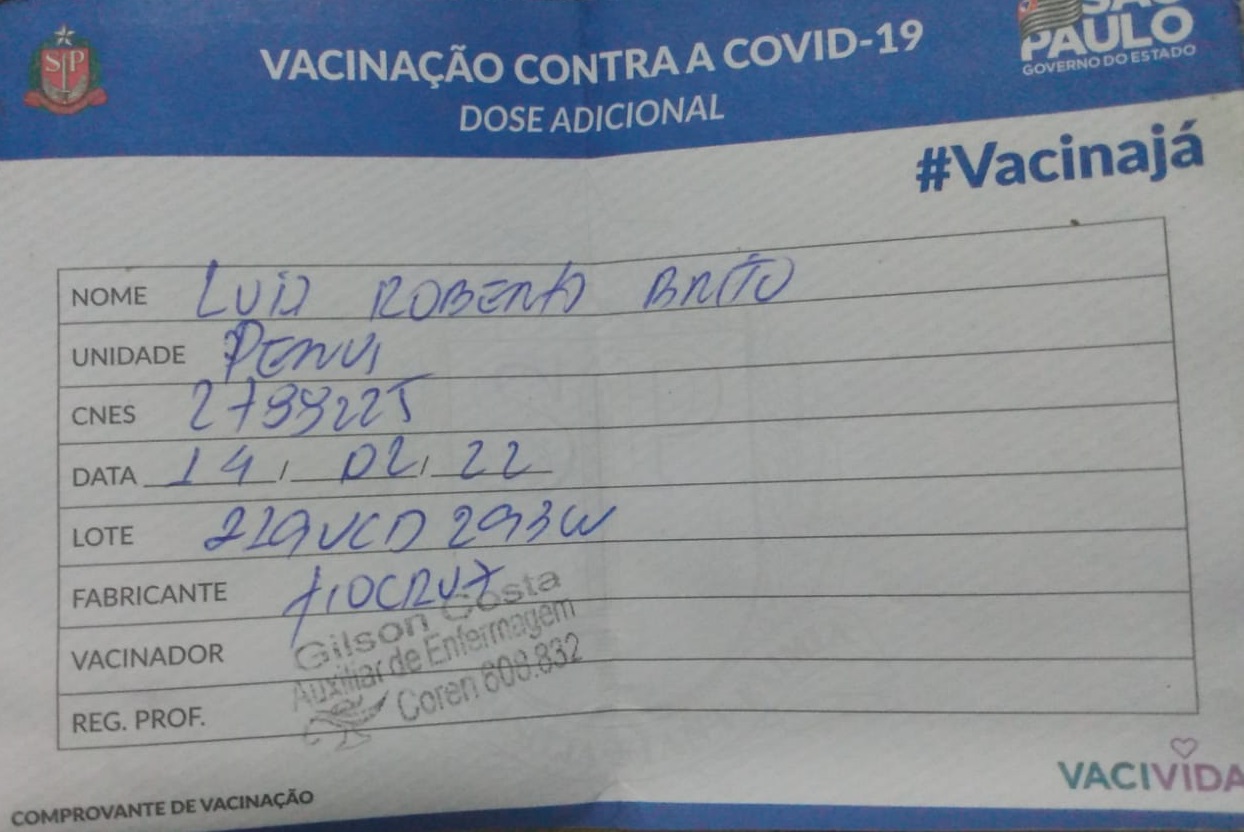 SP
SÃO
PAULO
GOVERNO DO ESTADO
VACINAÇÃO CONTRA A COVID-19
DOSE ADICIONAL
#Vacinajá
NOME LUIZ ROBERTO BRITO
UNIDADE
CNES
DATA 14 / 02 / 22
LOTE 219VCD293W
FABRICANTE FIOCRUZ
VACINADOR Gilson Costa
Auxiliar de Enfermagem
REG. PROF. Coren 808.832
VACIVIDA
COMPROVANTE DE VACINAÇÃO